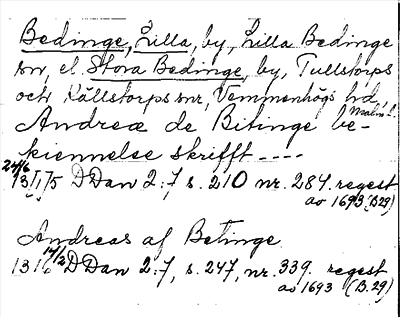 Bedinge, Lilla, by, Lilla Bedinge
sn, el. Stora Bedinge, by, Tullstorps
och Källstorps snr, Vemmenhögs hd,
Malm. l.
Andreæ de Bitinge be-
kiennelse skrifft ----
24/6
1315 DDan 2:7, s. 210 nr. 284. regest
av 1693 (B29)
Andreas af Betinge
14/2
1316 DDan 2:7, s. 247, nr. 339. regest
av 1693 (B.29)